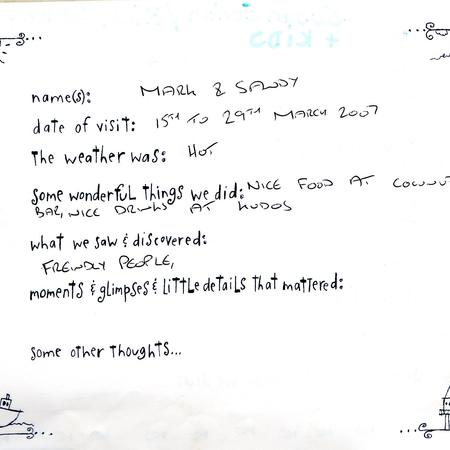 name(s): MARK & SANDY
date of visit: 15TH TO 29TH MARCH 2007
The weather was: HOT
Some wonderful things we did: NICE FOOD AT COCONUT
BAR, NICE DRINKS AT KUDOS
what we saw & discovered:
FREINDLY PEOPLE,
moments & glimpses & little details that mattered:
some other thoughts...